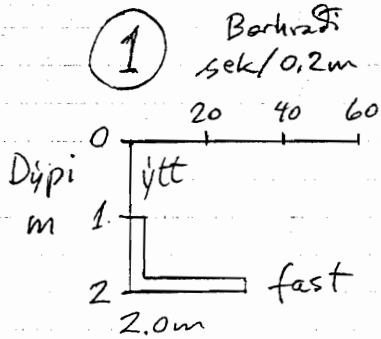 1
Borhraði
sek/0,2m
20 40 60
0
Dýpi
m
ýtt
1
2
fast
2.0m